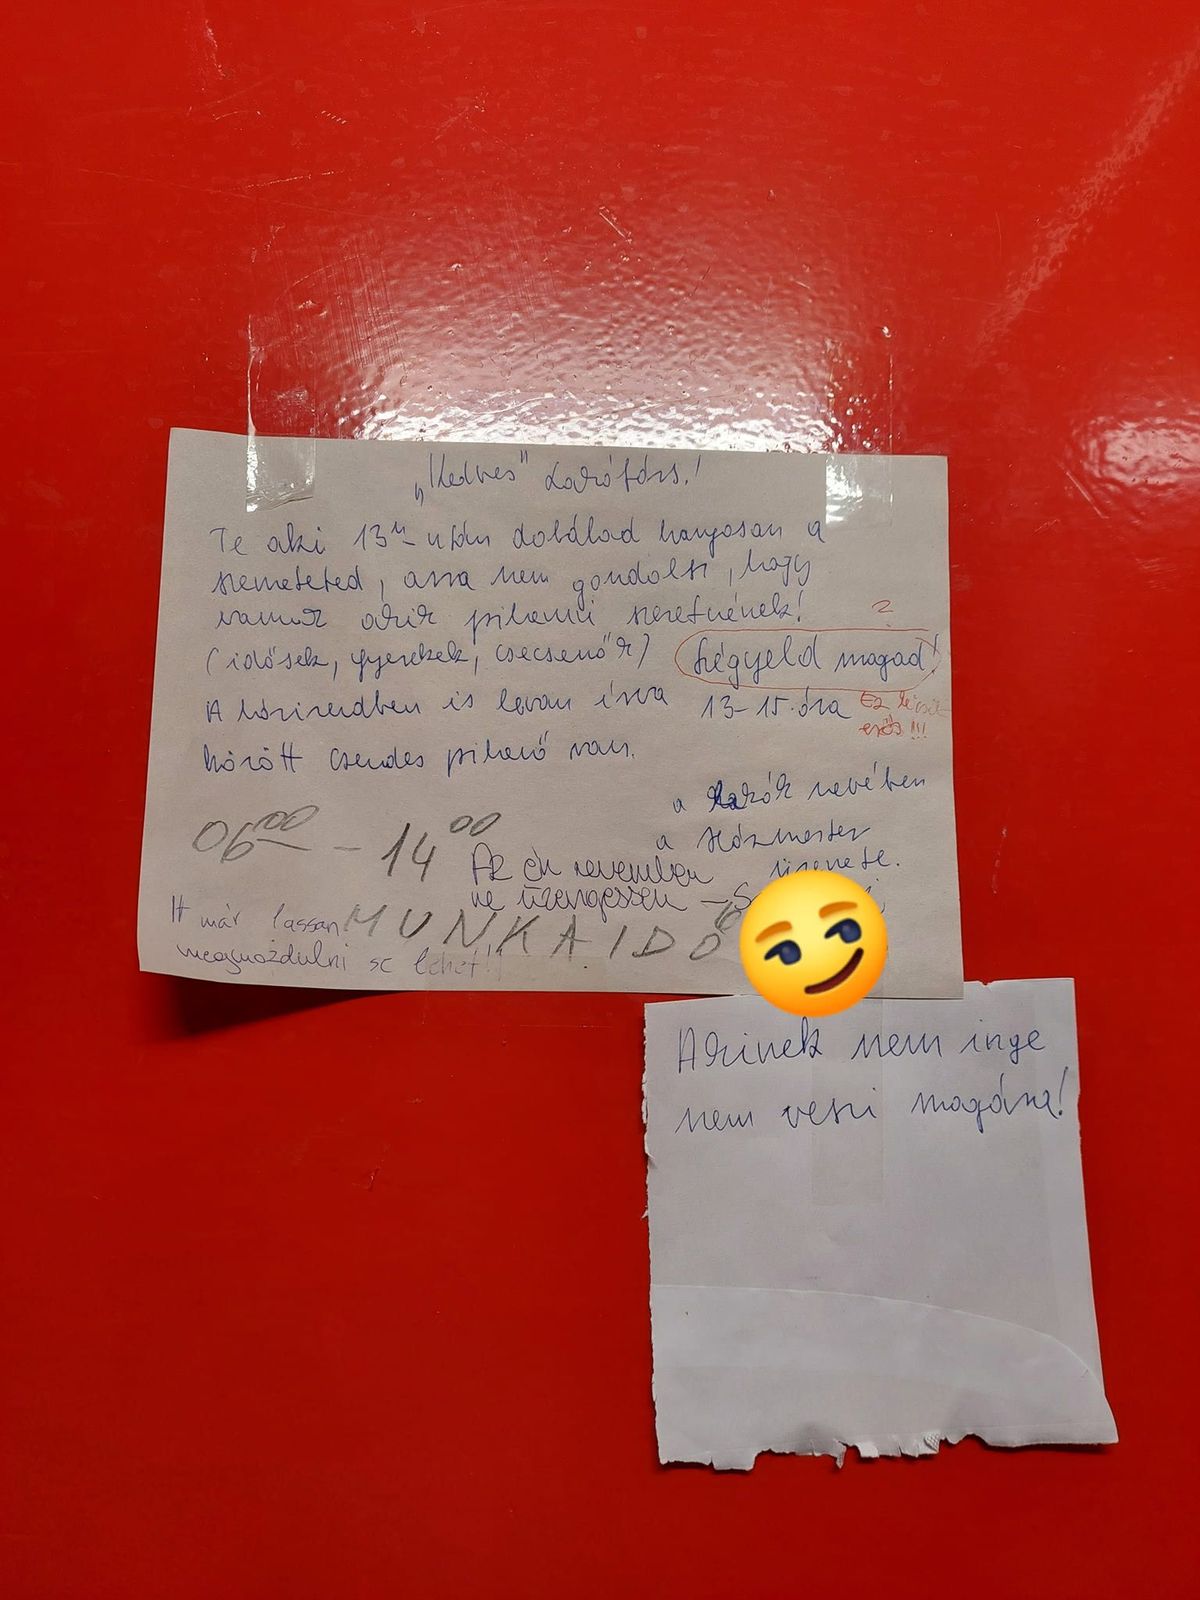 „Kedves" Lakótárs!
Te aki 13h után dobálod hangosan a
szemeted, arra nem gondolsz, hogy
vannak akik pihenni szeretnének!
(idősek, gyerekek, csecsemők) Szégyeld magad!
?
A háziredben is le van írva 13-15 óra
Ez kicsit
erős!!!
között csendes pihenő van.
a lakók nevében
a Házmester
üzenete.
06 00 - 14 00
Az én nevemben
ne üzengessen
Itt már lassan
megmozdulni se lehet!!
MUNKAIDŐ
Akinek nem inge
nem veszi magára!